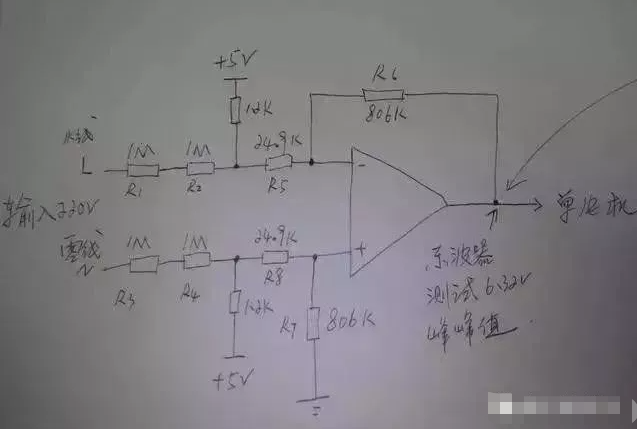 +5V
12K
R6
806K
火线
L
1M
R1
1M
R2
24.9K
R5
-
输入220V
单片机
零线
N
1M
R3
1M
R4
24.9K
R8
+
12K
+5V
R7
806K
示波器
测试6.32V
峰峰值.